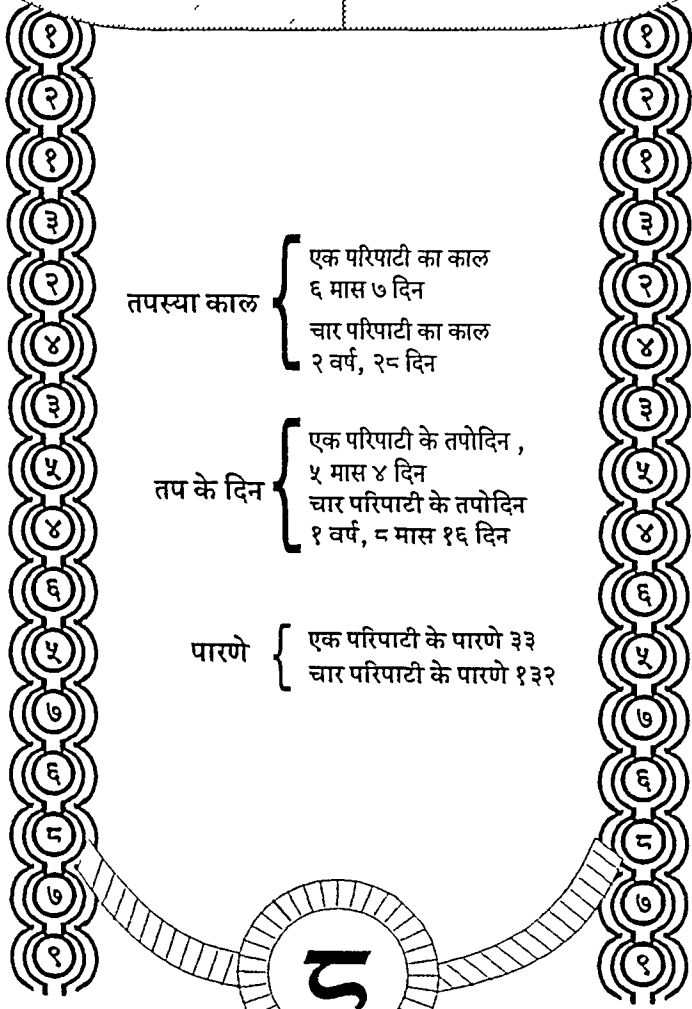 १
२
१
३
२
४
३
५
४
६
५
७
६
८
७
९
तपस्या काल
एक परिपाटी का काल
६ मास ७ दिन
चार परिपाटी का काल
२ वर्ष, २८ दिन
तप के दिन
एक परिपाटी के तपोदिन ,
५ मास ४ दिन
चार परिपाटी के तपोदिन
१ वर्ष, ८ मास १६ दिन
पारणे
एक परिपाटी के पारणे ३३
चार परिपाटी के पारणे १३२
१
२
१
३
२
४
३
५
४
६
५
७
६
८
७
९
८